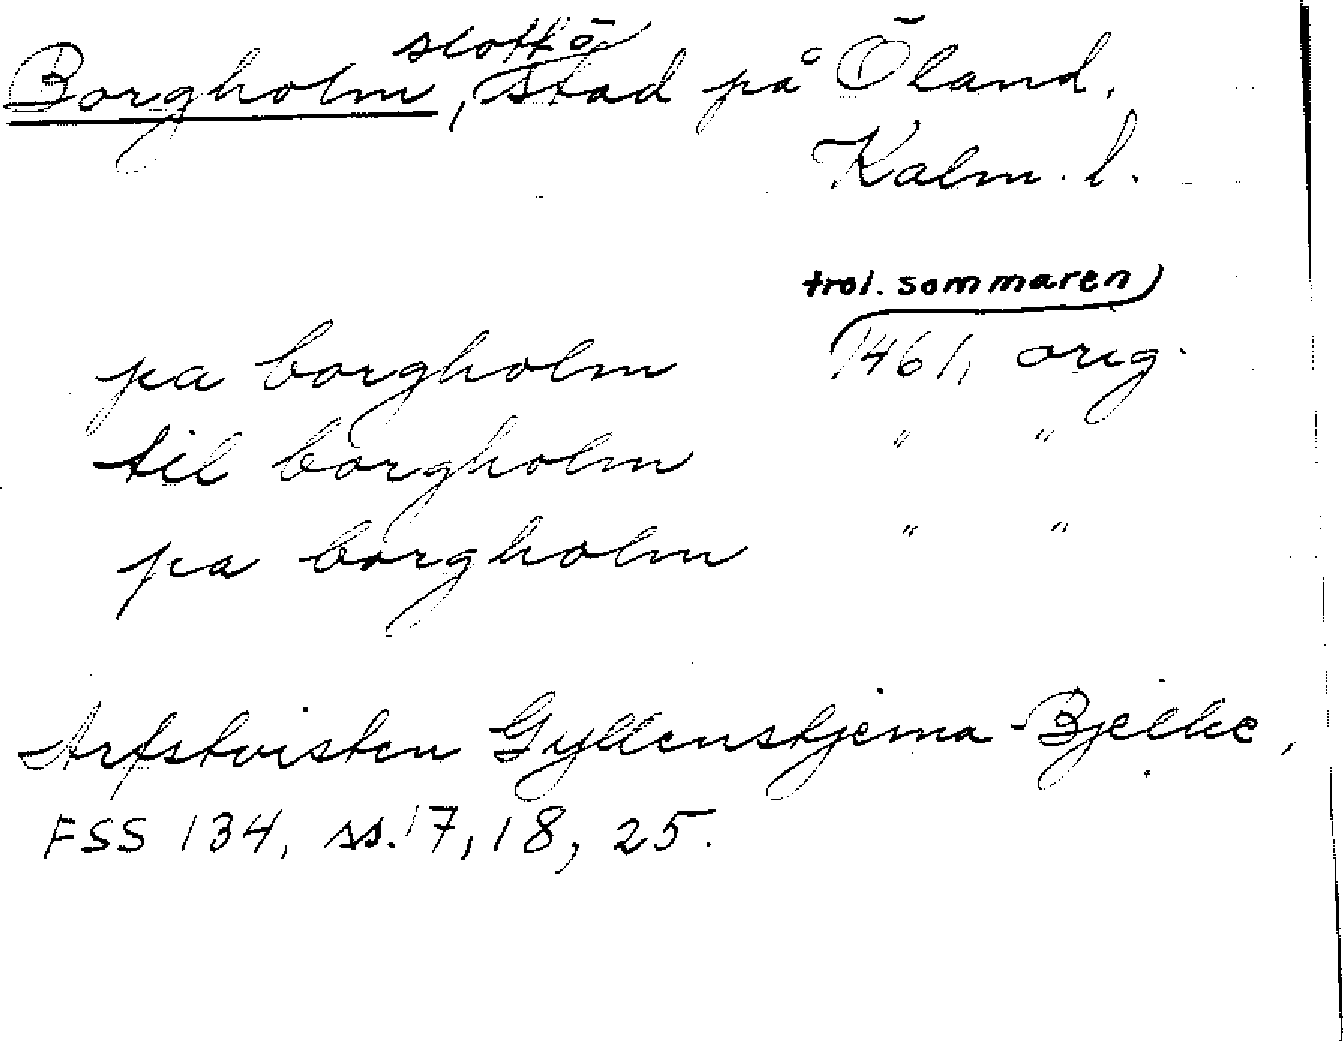 Borgholm, slott o. stad på Öland,
Kalm. l.
trol. sommaren
pa borgholm 1461, orig.
til borgholm " "
pa borgholm " "
Arfstvisten Gyllenstjerna-Bjelke,
FSS 134, ss. 17, 18, 25.